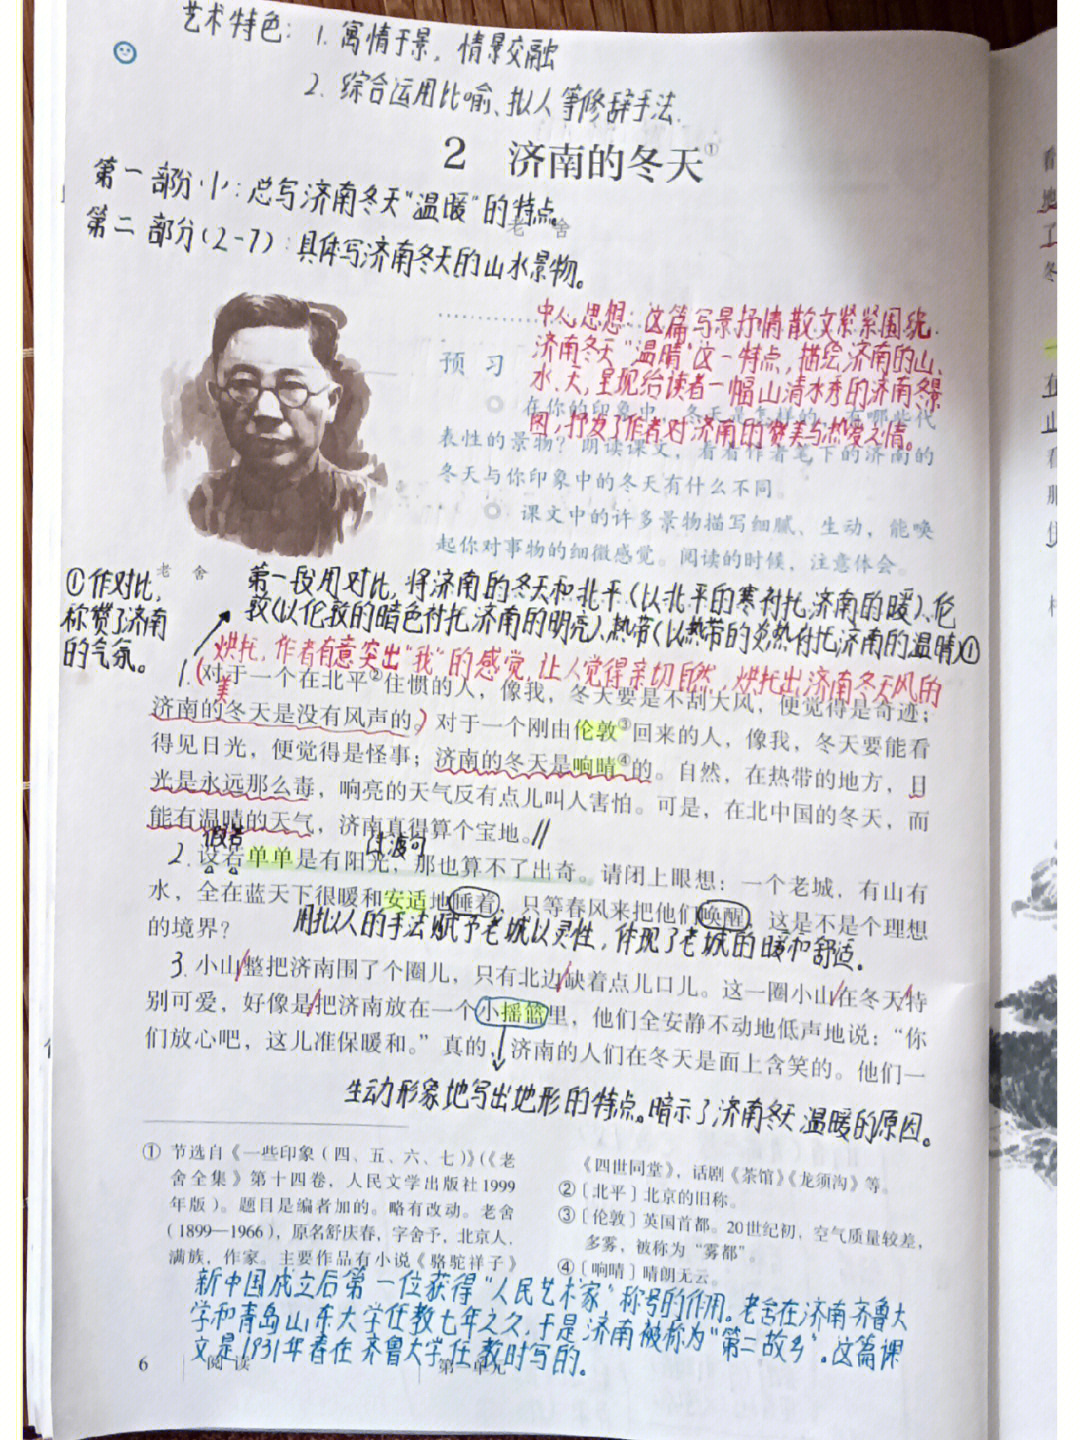 艺术特色：1. 寓情于景，情景交融
2. 综合运用比喻、拟人等修辞手法.
2 济南的冬天①
第一部分·1：总写济南冬天“温暖”的特点。
老 舍
第二部分(2-7)：具体写济南冬天的山水景物。
中心思想：这篇写景抒情散文紧紧围绕
济南冬天“温晴”这一特点，描绘济南的山、
水、天，呈现给读者一幅山清水秀的济南冬景
图，抒发了作者对济南的赞美与热爱之情。
预 习
在你的印象中，冬天是怎样的，有哪些代
表性的景物？朗读课文，看看作者笔下的济南的
冬天与你印象中的冬天有什么不同。
课文中的许多景物描写细腻、生动，能唤
起你对事物的细微感觉。阅读的时候，注意体会。
老 舍
①作对比，
称赞了济南
的气氛。
第一段用对比，将济南的冬天和北平(以北平的寒衬托济南的暖)、伦
敦(以伦敦的暗色衬托济南的明亮)、热带(以热带的炎热衬托济南的温晴)①
烘托，作者有意突出“我”的感觉，让人觉得亲切自然，烘托出济南冬天风的
美
1.(对于一个在北平②住惯的人，像我，冬天要是不刮大风，便觉得是奇迹；
济南的冬天是没有风声的。)对于一个刚由伦敦③回来的人，像我，冬天要能看
得见日光，便觉得是怪事；济南的冬天是响晴④的。自然，在热带的地方，日
光是永远那么毒，响亮的天气反有点儿叫人害怕。可是，在北中国的冬天，而
能有温晴的天气，济南真得算个宝地。//
假若
过渡句
2.设若单单是有阳光，那也算不了出奇。请闭上眼想：一个老城，有山有
水，全在蓝天下很暖和安适地睡着，只等春风来把他们唤醒，这是不是个理想
的境界？
用拟人的手法赋予老城以灵性，体现了老城的暖和舒适.
3.小山/整把济南围了个圈儿，只有北边/缺着点儿口儿。这一圈小山/在冬天/特
别可爱，好像是/把济南放在一个小摇篮里，他们全安静不动地低声地说：“你
们放心吧，这儿准保暖和。”真的，济南的人们在冬天是面上含笑的。他们一
生动形象地写出地形的特点。暗示了济南冬天温暖的原因。
① 节选自《一些印象（四、五、六、七）》（《老
舍全集》第十四卷，人民文学出版社1999
年版）。题目是编者加的。略有改动。老舍
（1899—1966），原名舒庆春，字舍予，北京人，
满族，作家。主要作品有小说《骆驼祥子》
《四世同堂》，话剧《茶馆》《龙须沟》等。
②〔北平〕北京的旧称。
③〔伦敦〕英国首都。20世纪初，空气质量较差，
多雾，被称为“雾都”。
④〔响晴〕晴朗无云。
新中国成立后第一位获得“人民艺术家”称号的作用。老舍在济南齐鲁大
学和青岛山东大学任教七年之久，于是济南被称为“第二故乡”。这篇课
文是1931年春在齐鲁大学任教时写的。
6 阅 读 第一单元